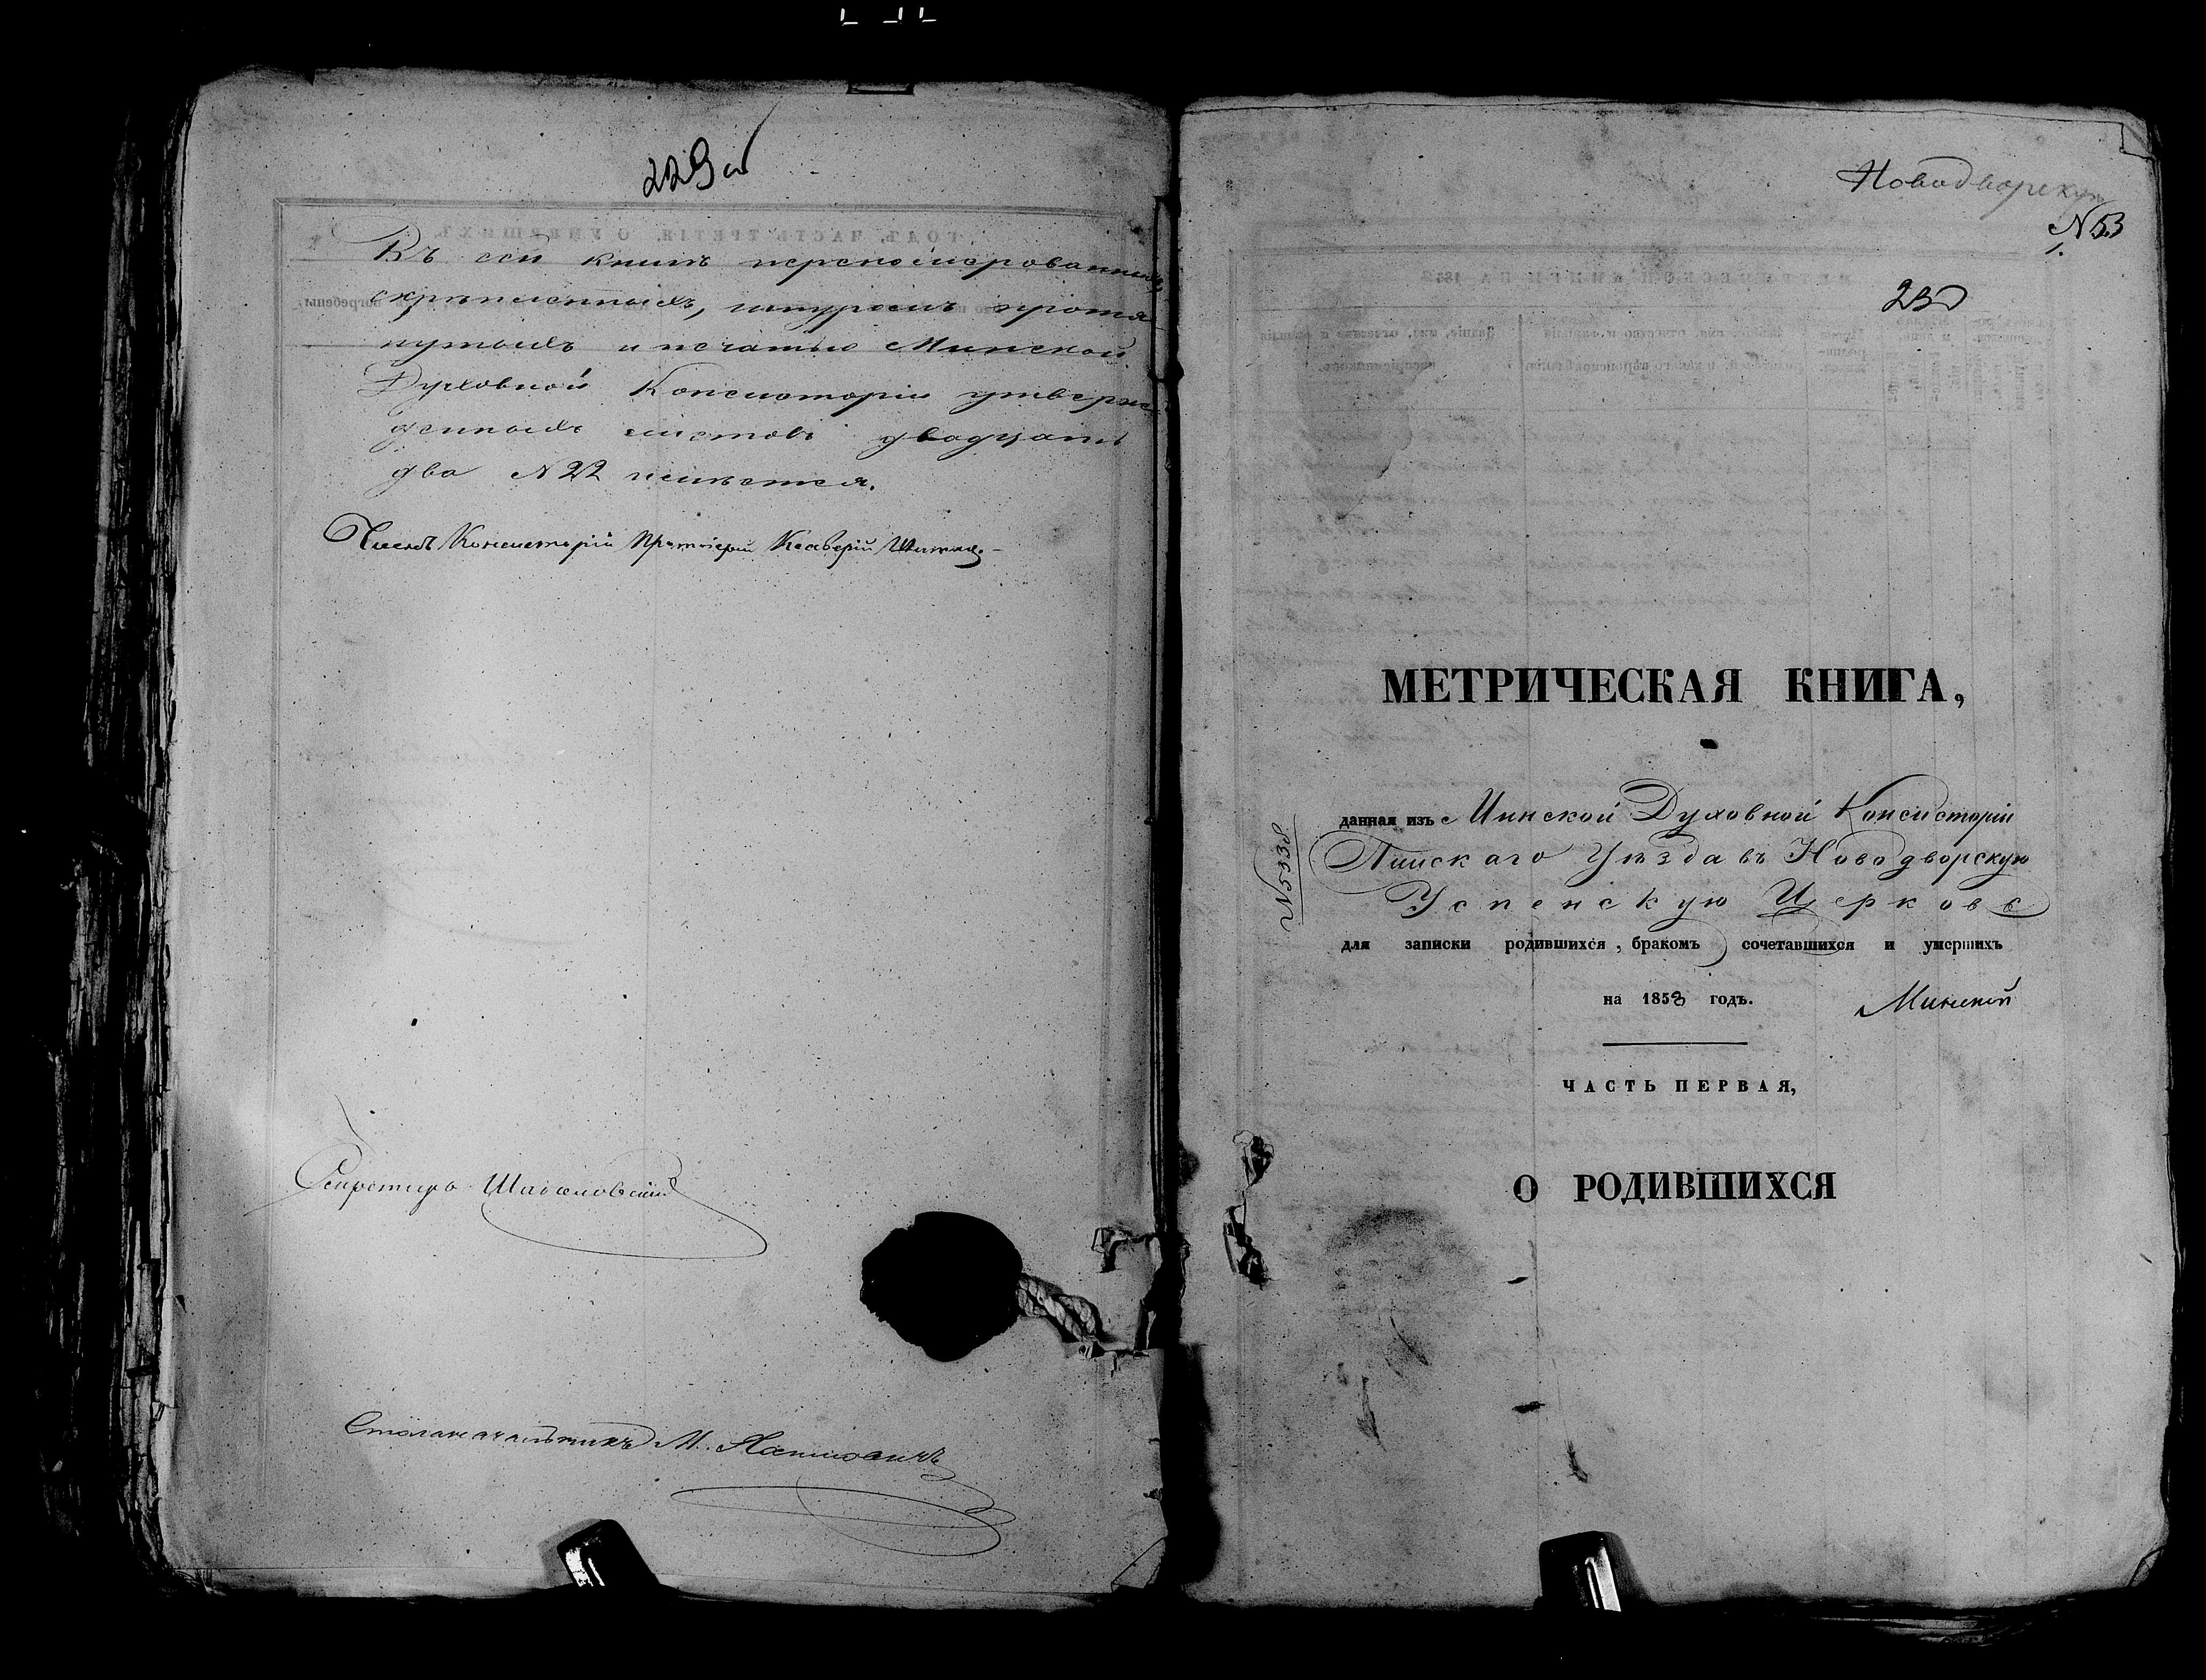 229 об
Въ сей книгѣ перенумерованныхъ,
скрѣпленныхъ, шнуромъ протя
нутыхъ и печатью Минской
Духовной Консисторіи утверж
денныхъ листовъ двадцать
два N 22 имѣется.
Членъ Консисторіи Протоіерей
Секретарь
Столоначальникъ М.
Новодворскую
N 53
1.
230
МЕТРИЧЕСКАЯ КНИГА,
данная изъ Минской Духовной Консисторіи
Пинскаго Уѣзда въ Новодворскую
Успенскую Церковь
для записки родившихся, бракомъ сочетавшихся и умершихъ
на 1858 годъ.
Минской
ЧАСТЬ ПЕРВАЯ,
О РОДИВШИХСЯ
N 5338